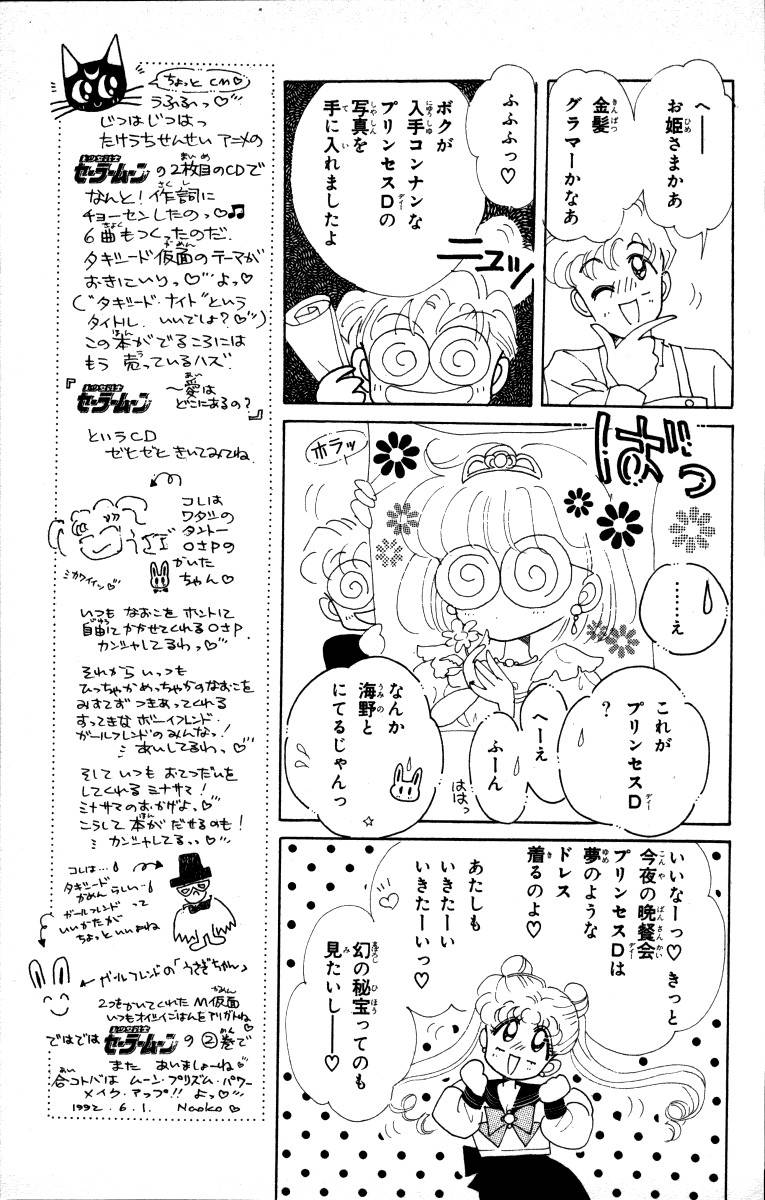 へ──
お姫さまかあ
金髪
グラマーかなあ
ふふふっ♡
ボクが
入手コンナンな
プリンセスDの
写真を
手に入れましたよ
ニュッ
ばっ
ホラッ
……え
これが
プリンセスD
?
へーえ
ふーん
なんか
海野と
にてるじゃんっ
ははっ
いいなーっ♡きっと
今夜の晩餐会
プリンセスDは
夢のような
ドレス
着るのよ♡
あたしも
いきたーい
いきたーいっ♡
幻の秘宝ってのも
見たいし──♡
ちょっとCM♡
うふふるへっ♡
じつはじつはっ
たけうちせんせい アニメの
美少女戦士
セーラームーンの2枚目のCDで
なんと!作詞に
チョーセンしたのっ♡♫
6曲もつくったのだ.
タキシード仮面のテーマが
おきにいりっ♡よっ♡
("タキシード・ナイト"という
タイトル.いいでしょ?♡)
この本がでるころには
もう 売っているハズ.
『美少女戦士
セーラームーン ～愛は
どこにあるの?』
というCD
ぜひぜひ きいてみてね.
コレは
ワタシの
タントー
OSAPの
かいた
うさぎ
ちゃん♡
ミカワイイン♡
いつも なおこを ホントに
自由にかかせてくれるOSAP.
カンシャしてるわっ♡
それから いっつも
ひっちゃかめっちゃかのなおこを
みすてず つきあってくれる
すってきな ボーイフレンド・
ガールフレンドのみんなっ!
あいしてるわっ♡
そして いつも おてつだいを
してくれる ミナサマ!
ミナサマのおかげよ♡
こうして 本が だせるのも!
カンシャしてる..♡
コレは…
タキシード
かめん らしい…
ガールフレンド って
いいかたが
ちょっといいよね
ガールフレンドの「うさぎちゃん」
2つをかいてくれた M仮面
いつもオイシイごはんをアリガトね
ではでは 美少女戦士
セーラームーンの②巻で
また あいましょーね♡
合コトバは ムーン・プリズム・パワー
メイク・アップ!! よっ♡
1992. 6. 1. Naoko♡